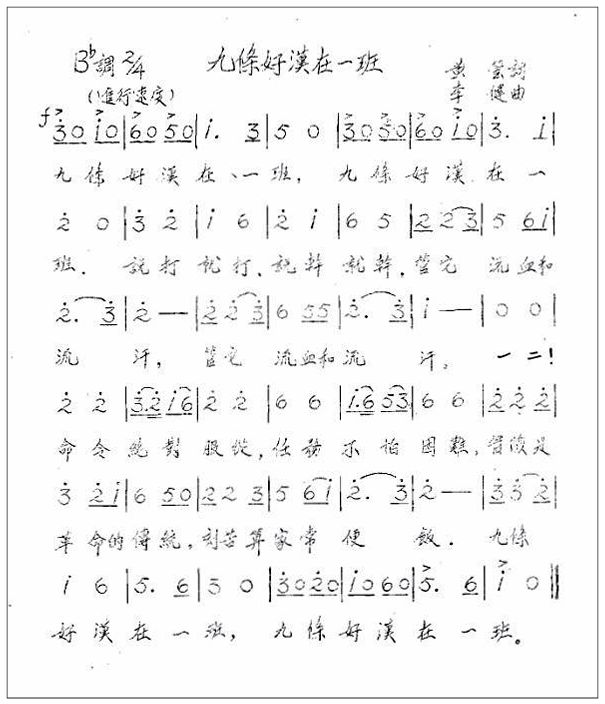 B♭調 2/4 九條好漢在一班 黃 瑩 詞
(進行速度) 李 健 曲
f 3̇0 i̇0|60 50|i̇. 3|5 0|30 50|60 i̇0|3̇. i̇|
九條好漢在一班,九條好漢在一
2̇ 0|3̇ 2̇|i̇ 6|2̇ i̇|6 5|2 2 3|5 6i̇|
班.說打就打,說幹就幹,管它流血和
2̇. 3̇|2̇ —|2̇ 2̇ 3̇|6 55|2̇. 3̇|i̇ —|0 0|
流汗,管它流血和流汗,一二!
2̇ 2̇|3̇.2̇ i̇6|2̇ 2̇|6 6|i̇.6 53|6 6|2̇ 2̇ 2̇|
命令絕對服從,任務不怕困難,是
3̇ 2̇i̇|6 50|22 3|5 6i̇|2̇. 3̇|2̇ —|3̇3̇ 2̇|
革命的傳統,刻苦算家常便飯.九條
i̇ 6|5. 6|3 0|3̇0 2̇0|i̇0 60|5. 6|i̇ 0‖
好漢在一班,九條好漢在一班。